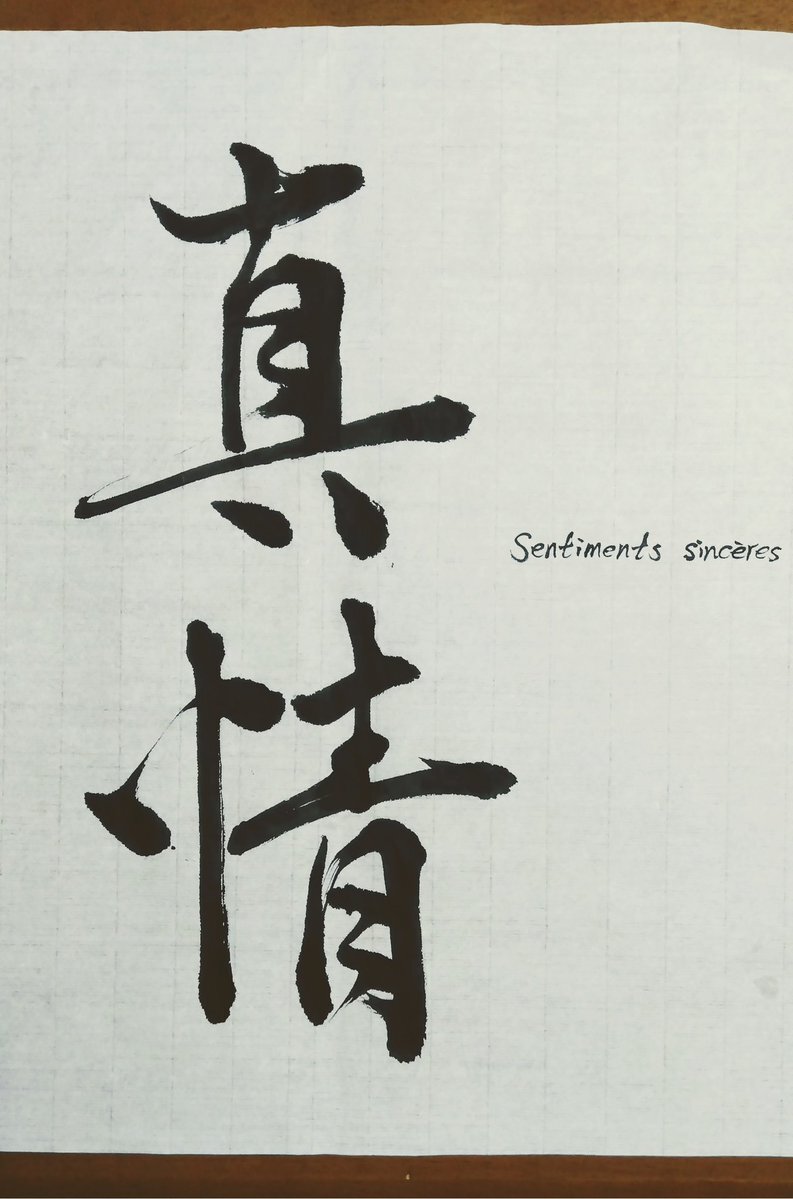 真情
Sentiments sincères